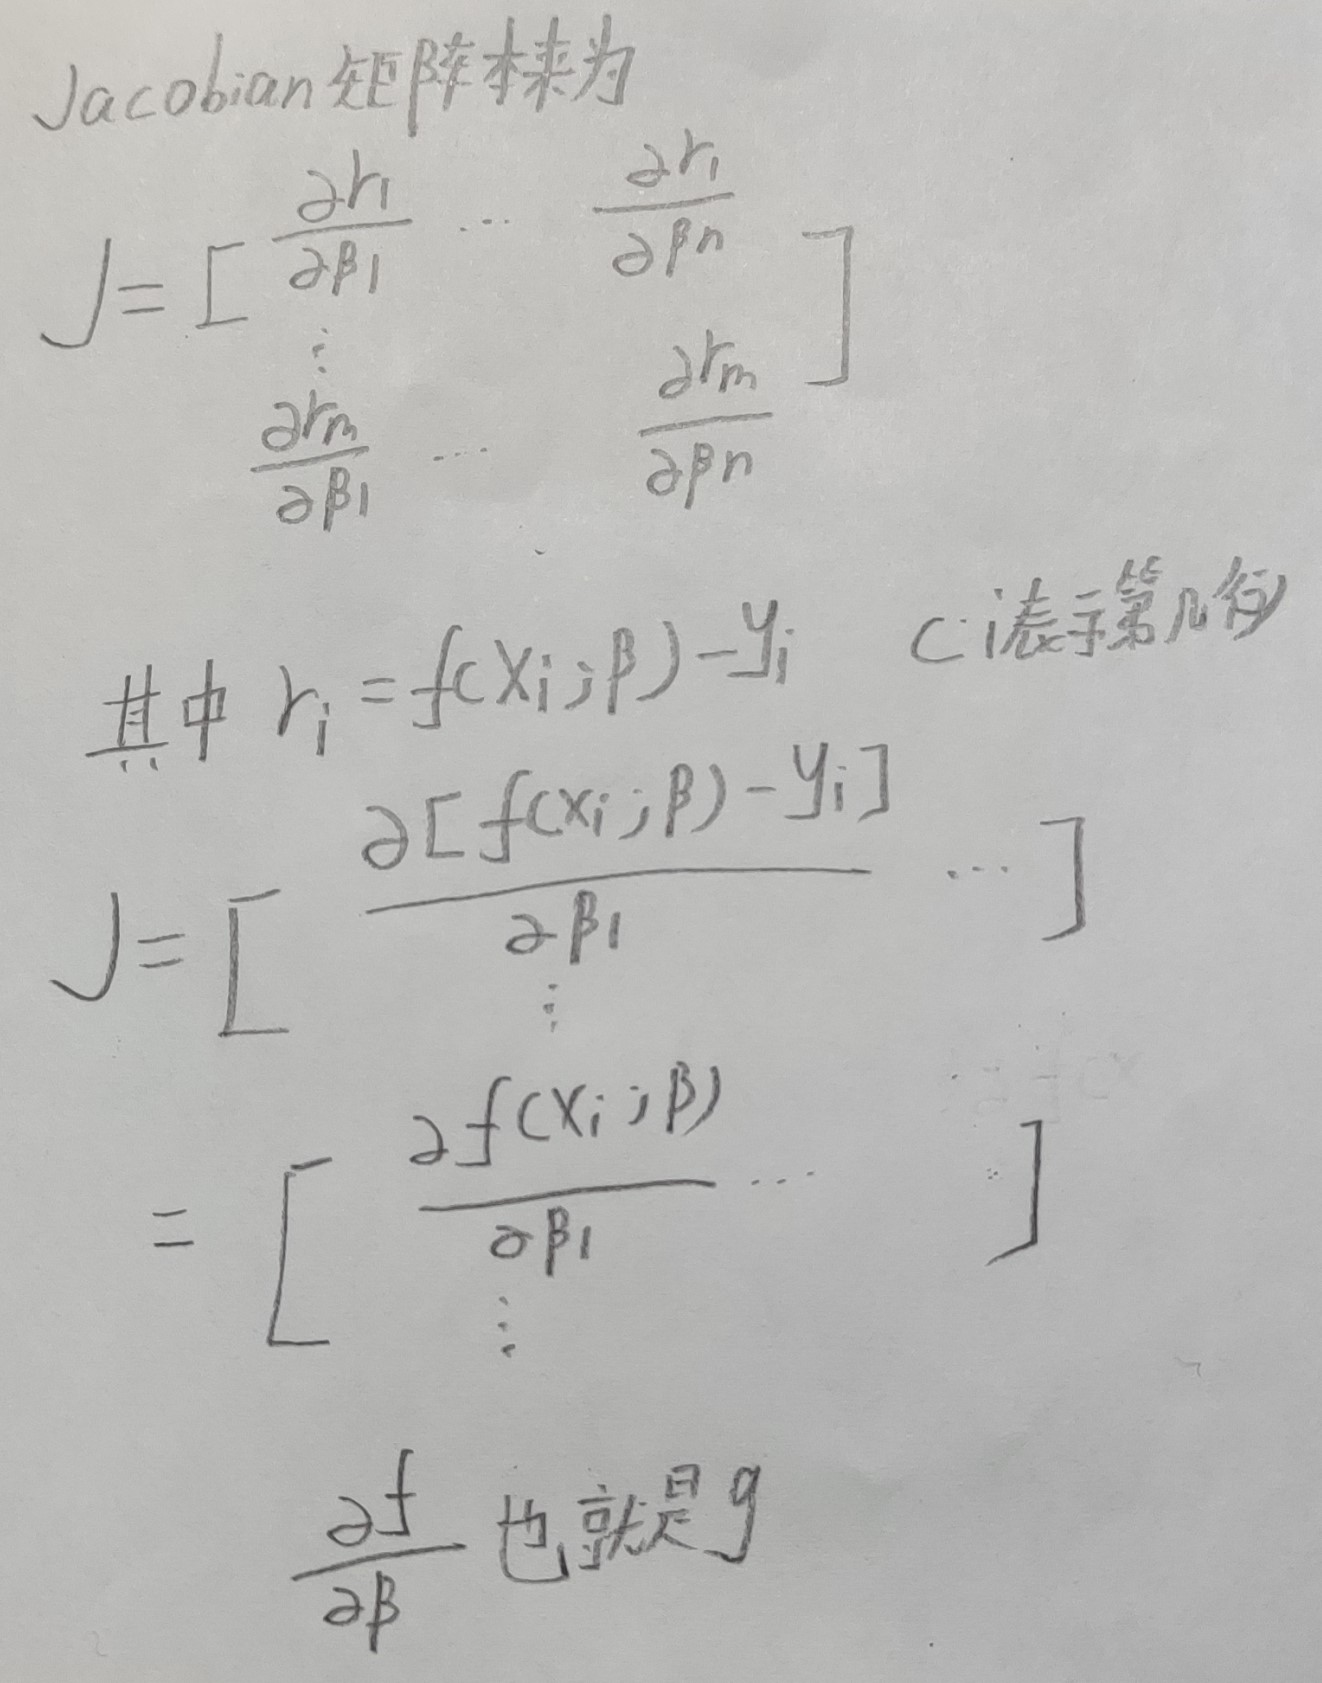 Jacobian矩阵本来为
J = [ ∂r₁/∂β₁ … ∂r₁/∂βn ]
⋮
∂rm/∂β₁ … ∂rm/∂βn
其中 rᵢ = f(xᵢ;β) - yᵢ (i表示第几行
J = [ ∂[f(xᵢ;β) - yᵢ]/∂β₁ … ]
⋮
= [ ∂f(xᵢ;β)/∂β₁ … ]
⋮
∂f/∂β 也就是g